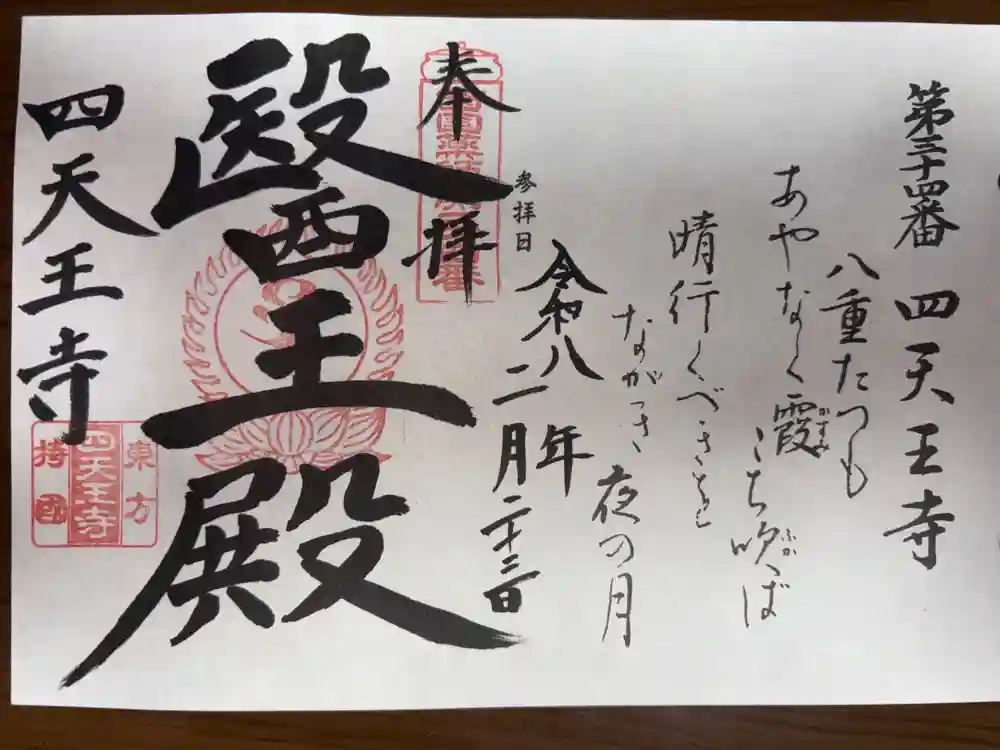 第三十四番 四天王寺
八重たつも
あやなく霞こち吹かば
かすみ
ふか
晴行くべきを
ながき夜の月
参拝日
令和八年
二月二十三日
奉拝
醫王殿
四天王寺
東方
四天王寺
持国